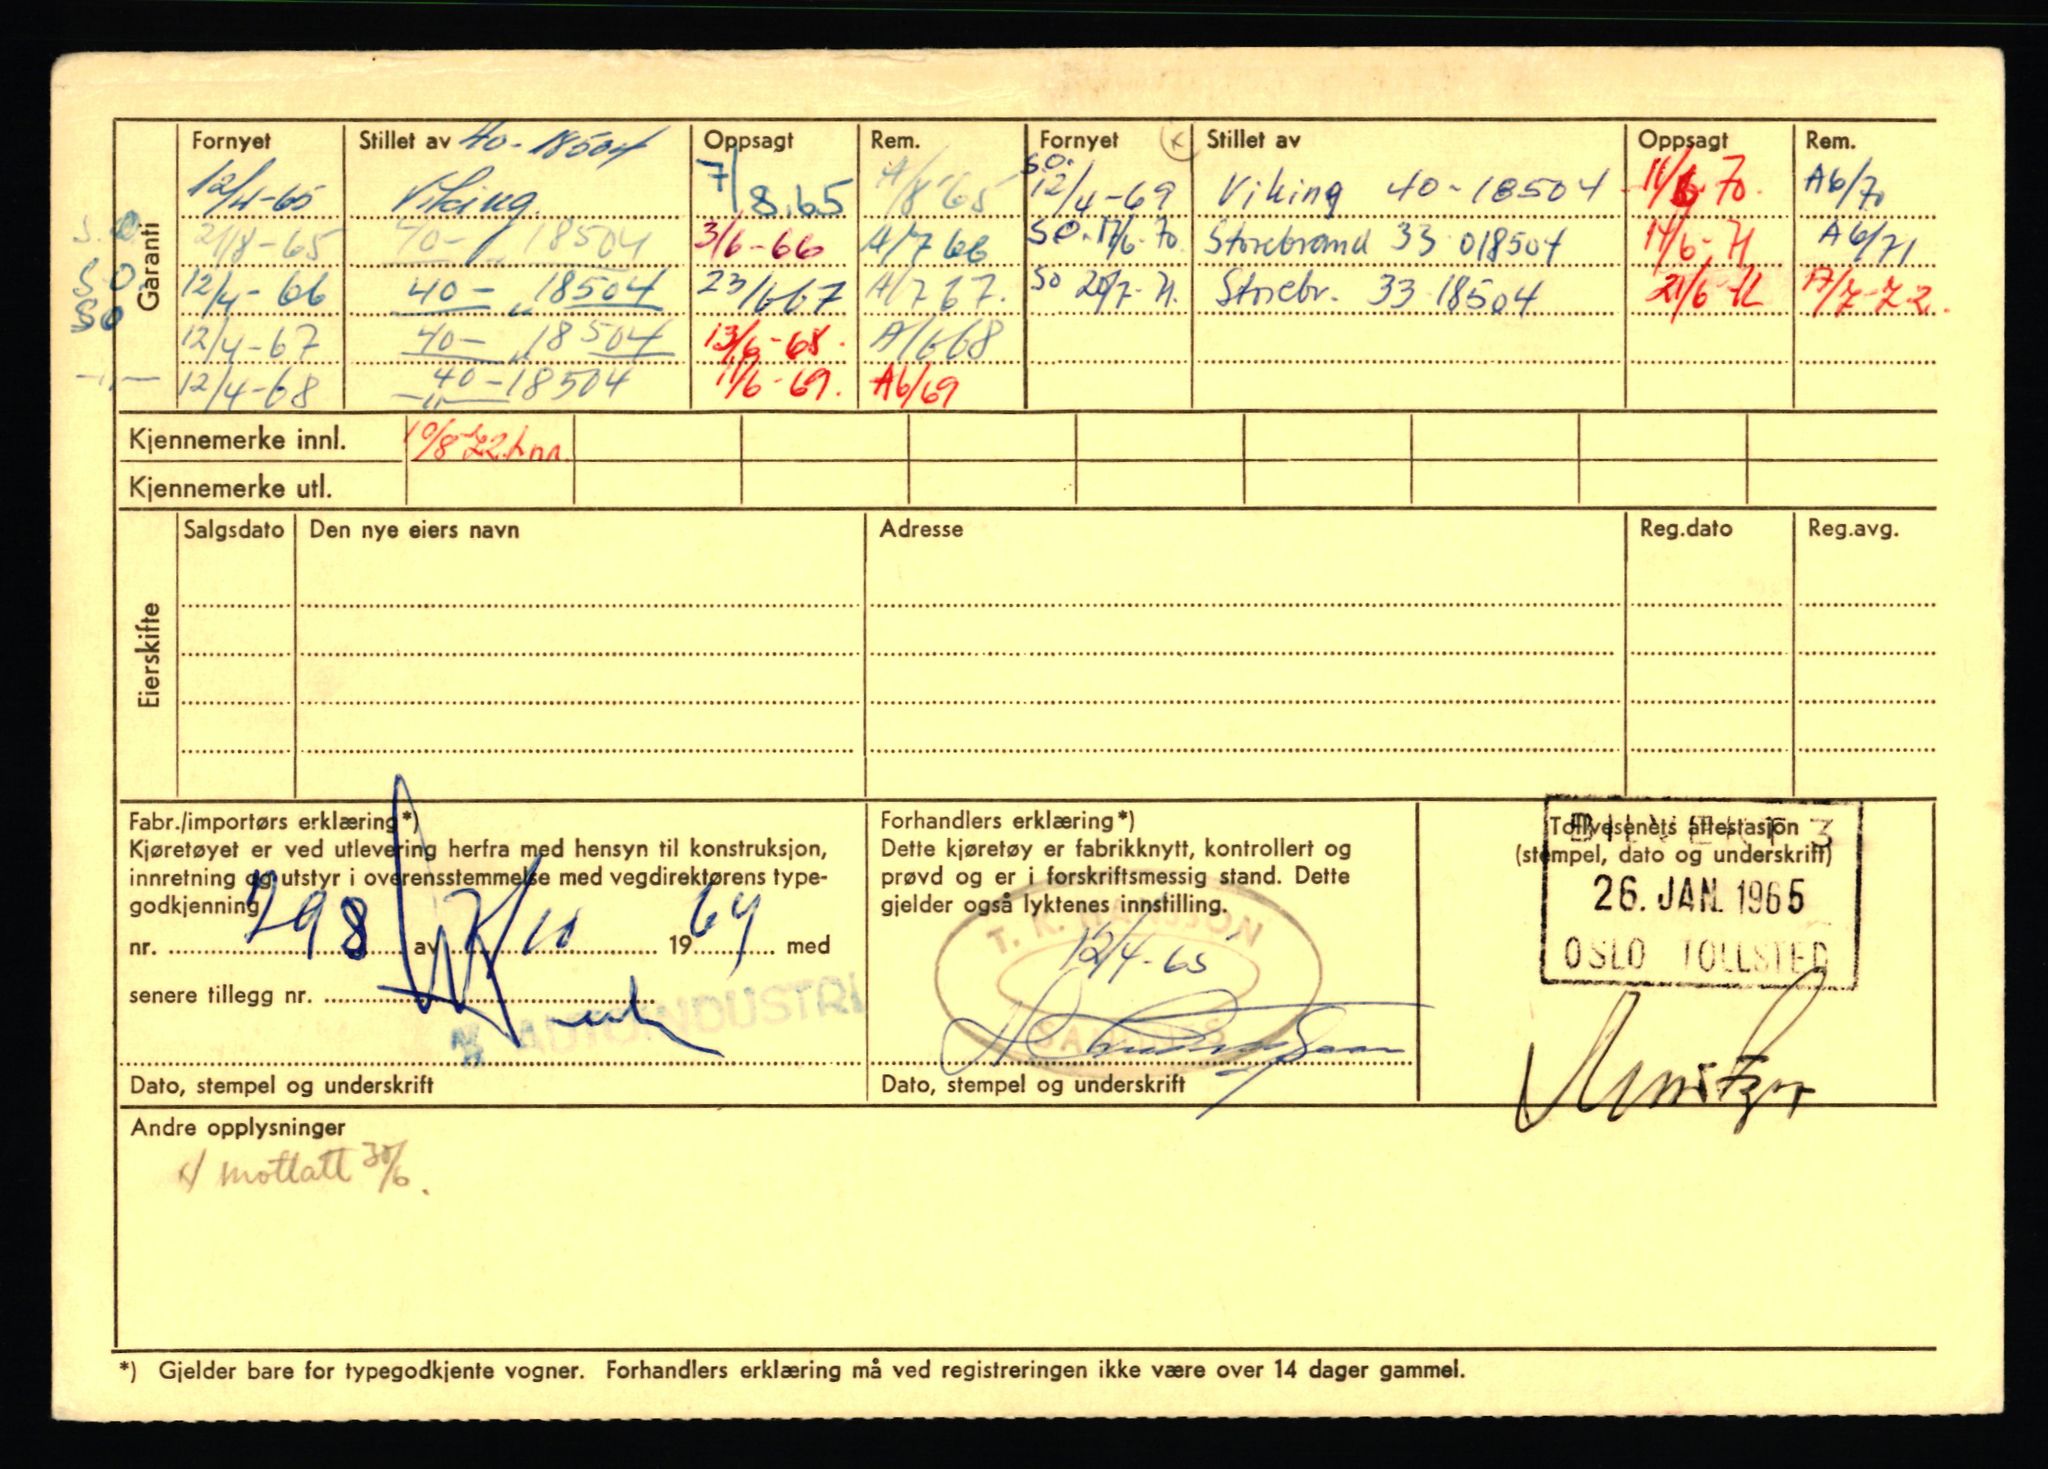 Garanti
Fornyet Stillet av 40-18504 Oppsagt Rem. Fornyet Stillet av Oppsagt Rem.
12/4-65 Viking 7/8.65 A/8-65 S.O. 12/4-69 Viking 40-18504 11/6-70. A6/70
S.O. 21/8-65 40- " 18504 3/6-66 A/7 66 SO. 17/6-70. Storebrand 33 018504 14/6-71 A6/71
S.O. 12/4-66 40- " 18504 23/6 67 A/7 67. SO 20/7-71. Storebr. 33 18504 21/6-72 A/7-72.
SO 12/4-67 40- " 18504 13/6-68. A/6 68
-"- 12/4-68 40-18504 11/6-69. A6/69
Kjennemerke innl. 10/8-72.
Kjennemerke utl.
Eierskifte
Salgsdato Den nye eiers navn Adresse Reg.dato Reg.avg.
Fabr./importørs erklæring*)
Kjøretøyet er ved utlevering herfra med hensyn til konstruksjon,
innretning og utstyr i overensstemmelse med vegdirektørens type-
godkjenning
nr. 298 av 10 1964 med
senere tillegg nr.
AUTOINDUSTRI
Dato, stempel og underskrift
Forhandlers erklæring*)
Dette kjøretøy er fabrikknytt, kontrollert og
prøvd og er i forskriftsmessig stand. Dette
gjelder også lyktenes innstilling.
T. K.
12/4-65
SANDNES
Dato, stempel og underskrift
Tollvesenets attestasjon
(stempel, dato og underskrift)
26. JAN. 1965
OSLO TOLLSTED
Andre opplysninger
x/ mottatt 30/6.
*) Gjelder bare for typegodkjente vogner. Forhandlers erklæring må ved registreringen ikke være over 14 dager gammel.